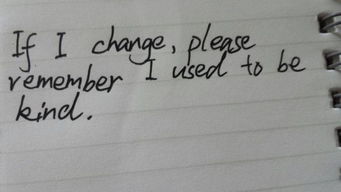 If I change, please
remember I used to be
kind.